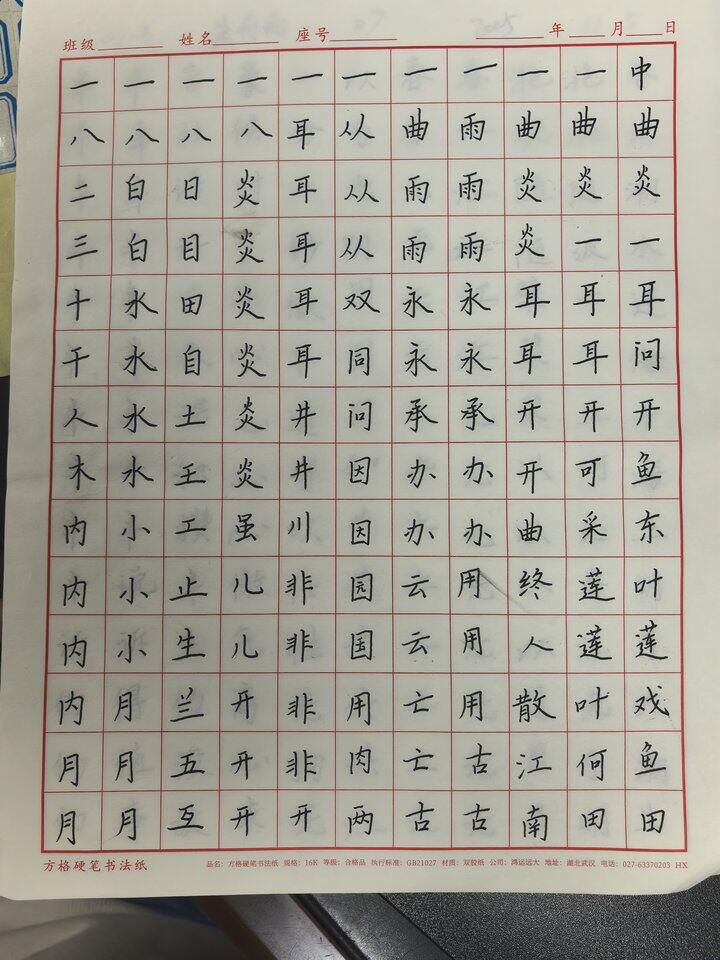 班级 姓名 座号 年 月 日
一 一 一 一 一 一 一 一 一 一 中
八 八 八 八 耳 从 曲 雨 曲 曲 曲
二 白 日 炎 耳 从 雨 雨 炎 炎 炎
三 白 目 炎 耳 从 雨 雨 炎 一 一
十 水 田 炎 耳 双 永 永 耳 耳 耳
干 水 自 炎 耳 同 永 永 耳 耳 问
人 水 土 炎 井 问 承 承 开 开 开
木 水 王 炎 井 因 办 办 开 可 鱼
内 小 工 虽 川 因 办 办 曲 采 东
内 小 止 儿 非 园 云 用 终 莲 叶
内 小 生 儿 非 国 云 用 人 莲 莲
内 月 兰 开 非 用 亡 用 散 叶 戏
月 月 五 开 非 肉 亡 古 江 何 鱼
月 月 互 开 开 两 古 古 南 田 田
方格硬笔书法纸 品名：方格硬笔书法纸 规格：16K 等级：合格品 执行标准：GB21027 材质：双胶纸 公司：鸿运远大 地址：湖北武汉 电话：027-63370203 HX